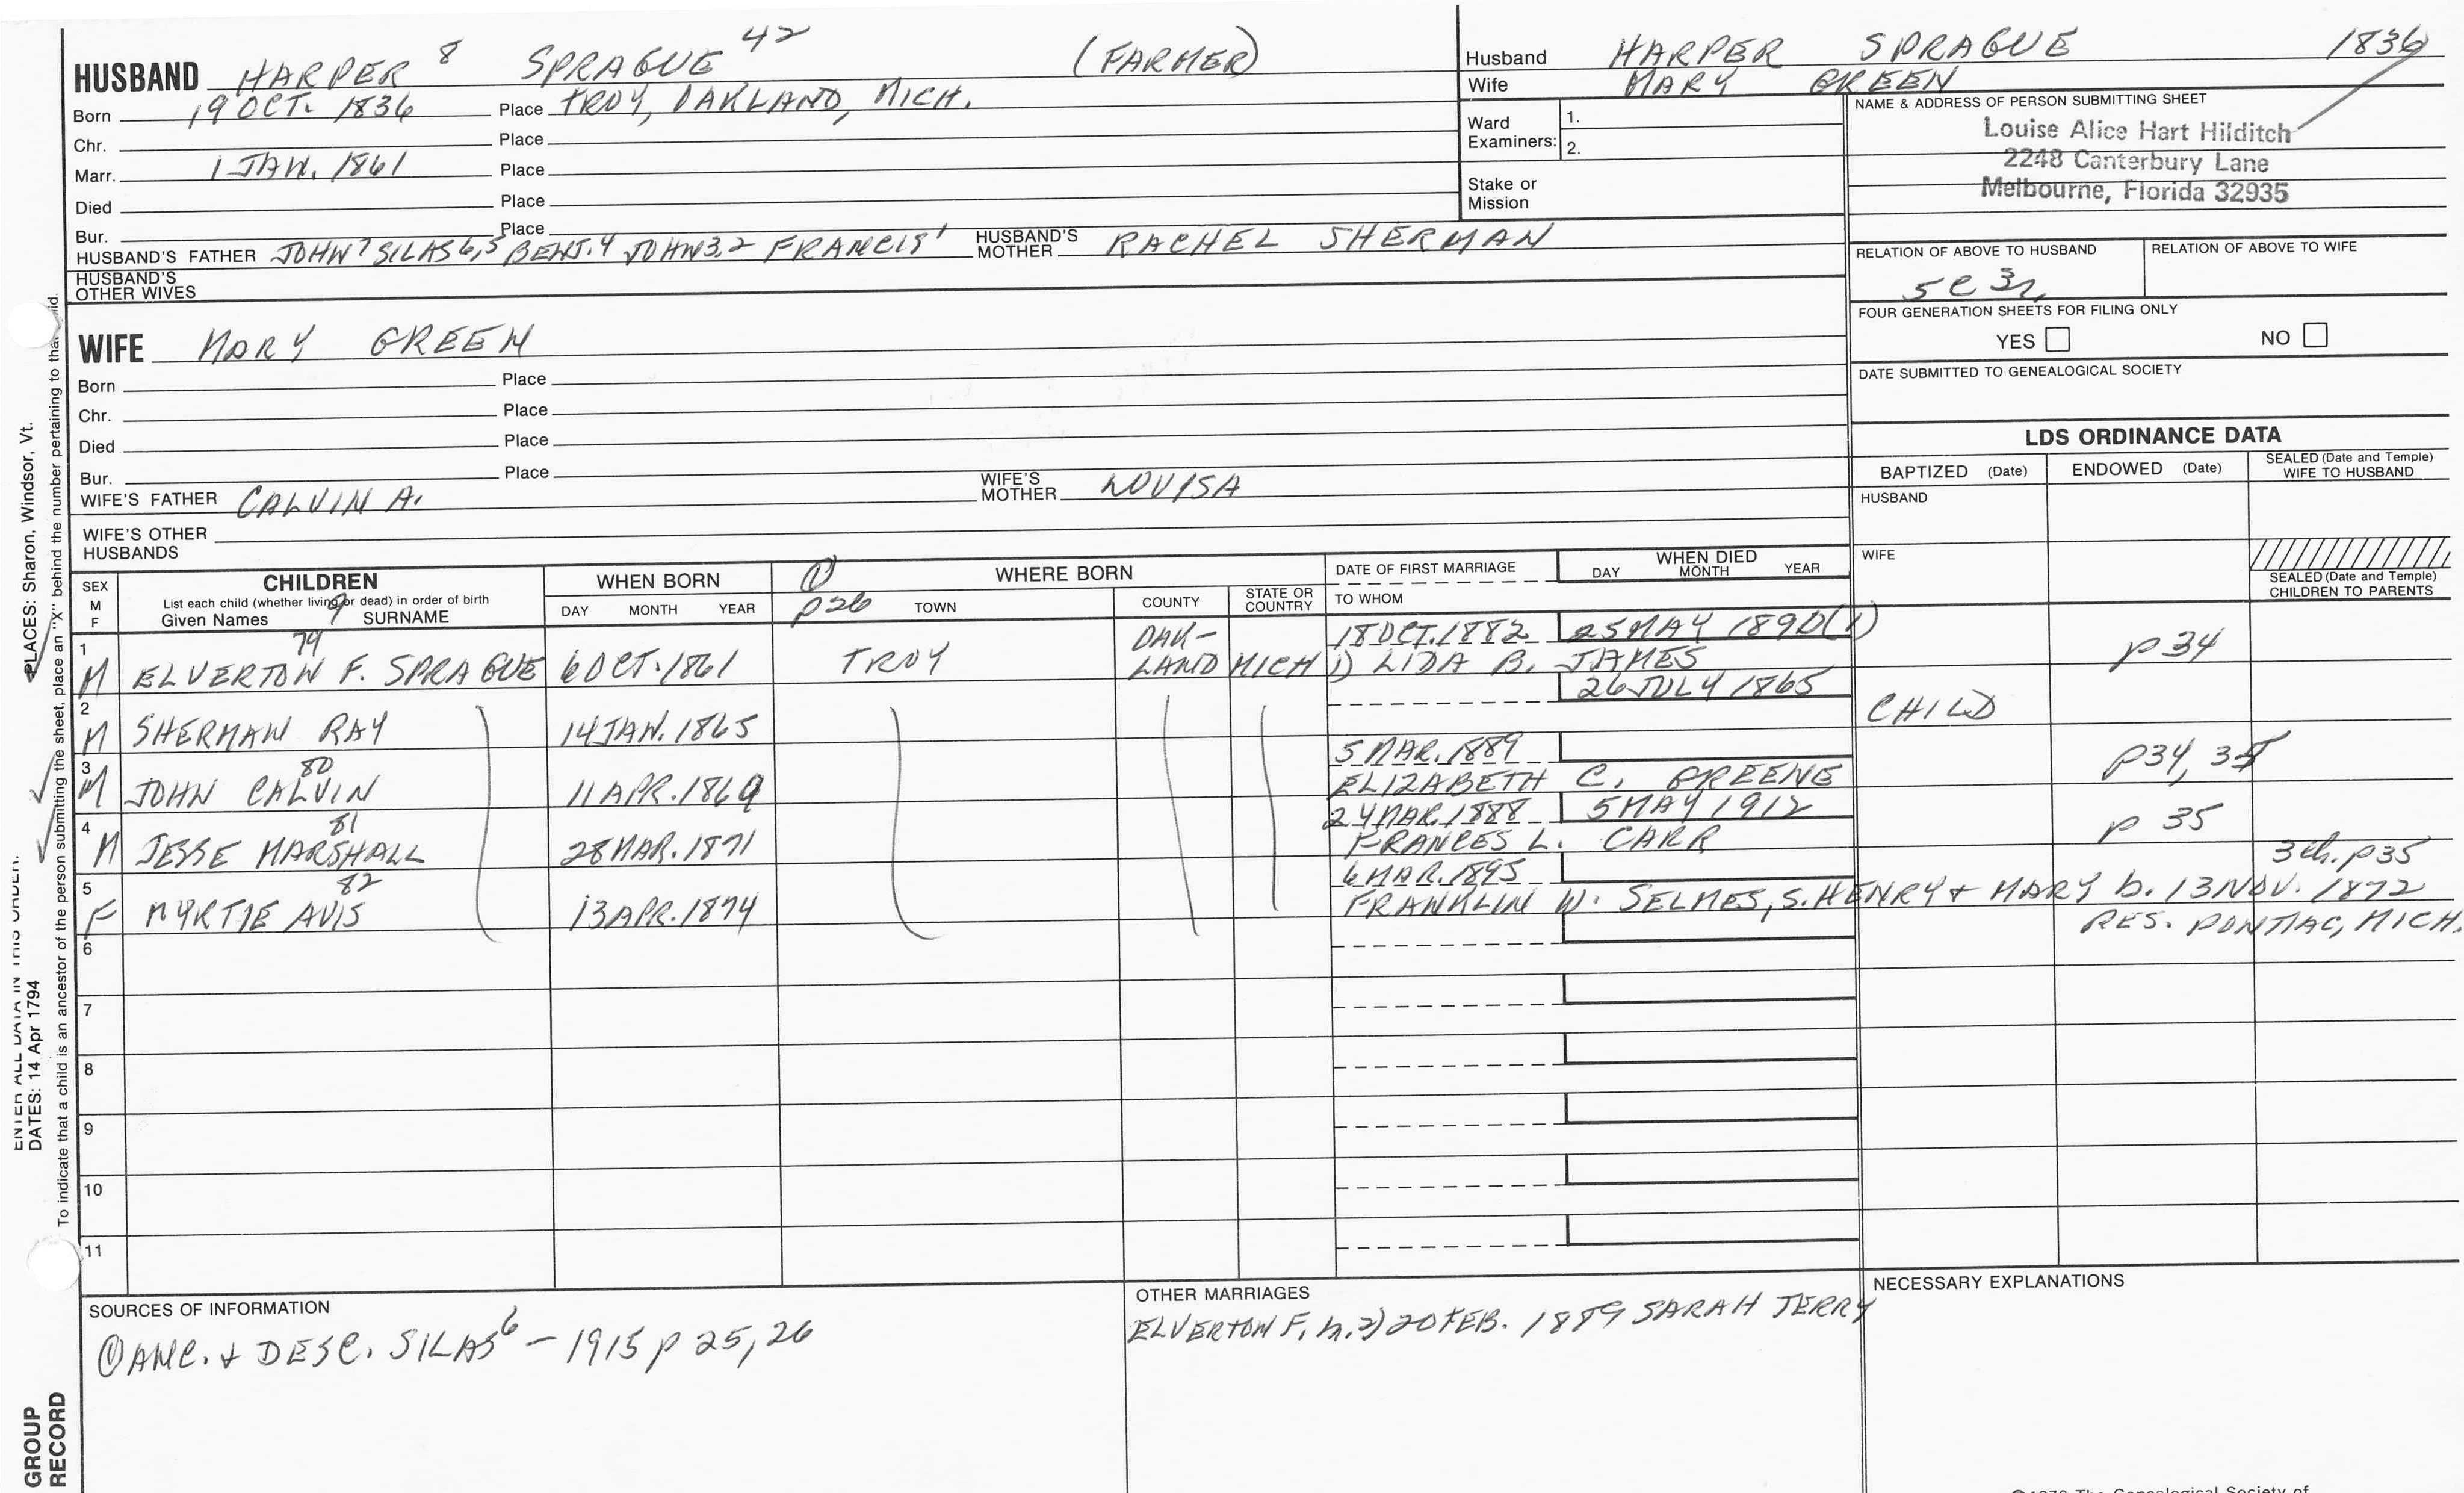 HUSBAND HARPER 8 SPRAGUE 42 (FARMER)
Born 19 OCT. 1836 Place TROY, OAKLAND, MICH.
Chr. Place
Marr. 1 JAN. 1861 Place
Died Place
Bur. Place
HUSBAND'S FATHER JOHN 7 SILAS 6,5 BENJ. 4 JOHN 3,2 FRANCIS 1 HUSBAND'S MOTHER RACHEL SHERMAN
HUSBAND'S OTHER WIVES
Husband HARPER SPRAGUE 1836
Wife MARY GREEN
Ward Examiners: 1.
2.
Stake or Mission
NAME & ADDRESS OF PERSON SUBMITTING SHEET
Louise Alice Hart Hilditch
2248 Canterbury Lane
Melbourne, Florida 32935
RELATION OF ABOVE TO HUSBAND RELATION OF ABOVE TO WIFE
5C 3r
FOUR GENERATION SHEETS FOR FILING ONLY
YES NO
DATE SUBMITTED TO GENEALOGICAL SOCIETY
WIFE MARY GREEN
Born Place
Chr. Place
Died Place
Bur. Place
WIFE'S FATHER CALVIN A. WIFE'S MOTHER LOUISA
WIFE'S OTHER HUSBANDS
LDS ORDINANCE DATA
BAPTIZED (Date) ENDOWED (Date) SEALED (Date and Temple) WIFE TO HUSBAND
HUSBAND
WIFE
SEALED (Date and Temple) CHILDREN TO PARENTS
SEX M F
CHILDREN
List each child (whether living or dead) in order of birth
Given Names 9 SURNAME
WHEN BORN
DAY MONTH YEAR
① p26 WHERE BORN
TOWN COUNTY STATE OR COUNTRY
DATE OF FIRST MARRIAGE
TO WHOM
WHEN DIED
DAY MONTH YEAR
1 79 OAK- 18 OCT. 1882 25 MAY 1890 (1)
M ELVERTON F. SPRAGUE 6 OCT. 1861 TROY LAND MICH 1) LIDA B. JAMES p34
2 26 JULY 1865
M SHERMAN RAY 14 JAN. 1865 CHILD
3 80 5 MAR. 1889
M JOHN CALVIN 11 APR. 1869 ELIZABETH C. GREENE p34, 35
4 81 24 MAR. 1888 5 MAY 1912
M JESSE MARSHALL 28 MAR. 1871 FRANCES L. CARR p 35
5 82 6 MAR. 1895 3 ch. p35
F MYRTIE AVIS 13 APR. 1874 FRANKLIN W. SELMES, S. HENRY + MARY b. 13 NOV. 1872
RES. PONTIAC, MICH.
6
7
8
9
10
11
SOURCES OF INFORMATION
① ANC. + DESC. SILAS 6 - 1915 p 25, 26
OTHER MARRIAGES
ELVERTON F. m. 2) 20 FEB. 1889 SARAH TERRY
NECESSARY EXPLANATIONS
PLACES: Sharon, Windsor, Vt.
ENTER ALL DATA IN THIS ORDER:
DATES: 14 Apr 1794
To indicate that a child is an ancestor of the person submitting the sheet, place an "X" behind the number pertaining to that child.
GROUP
RECORD